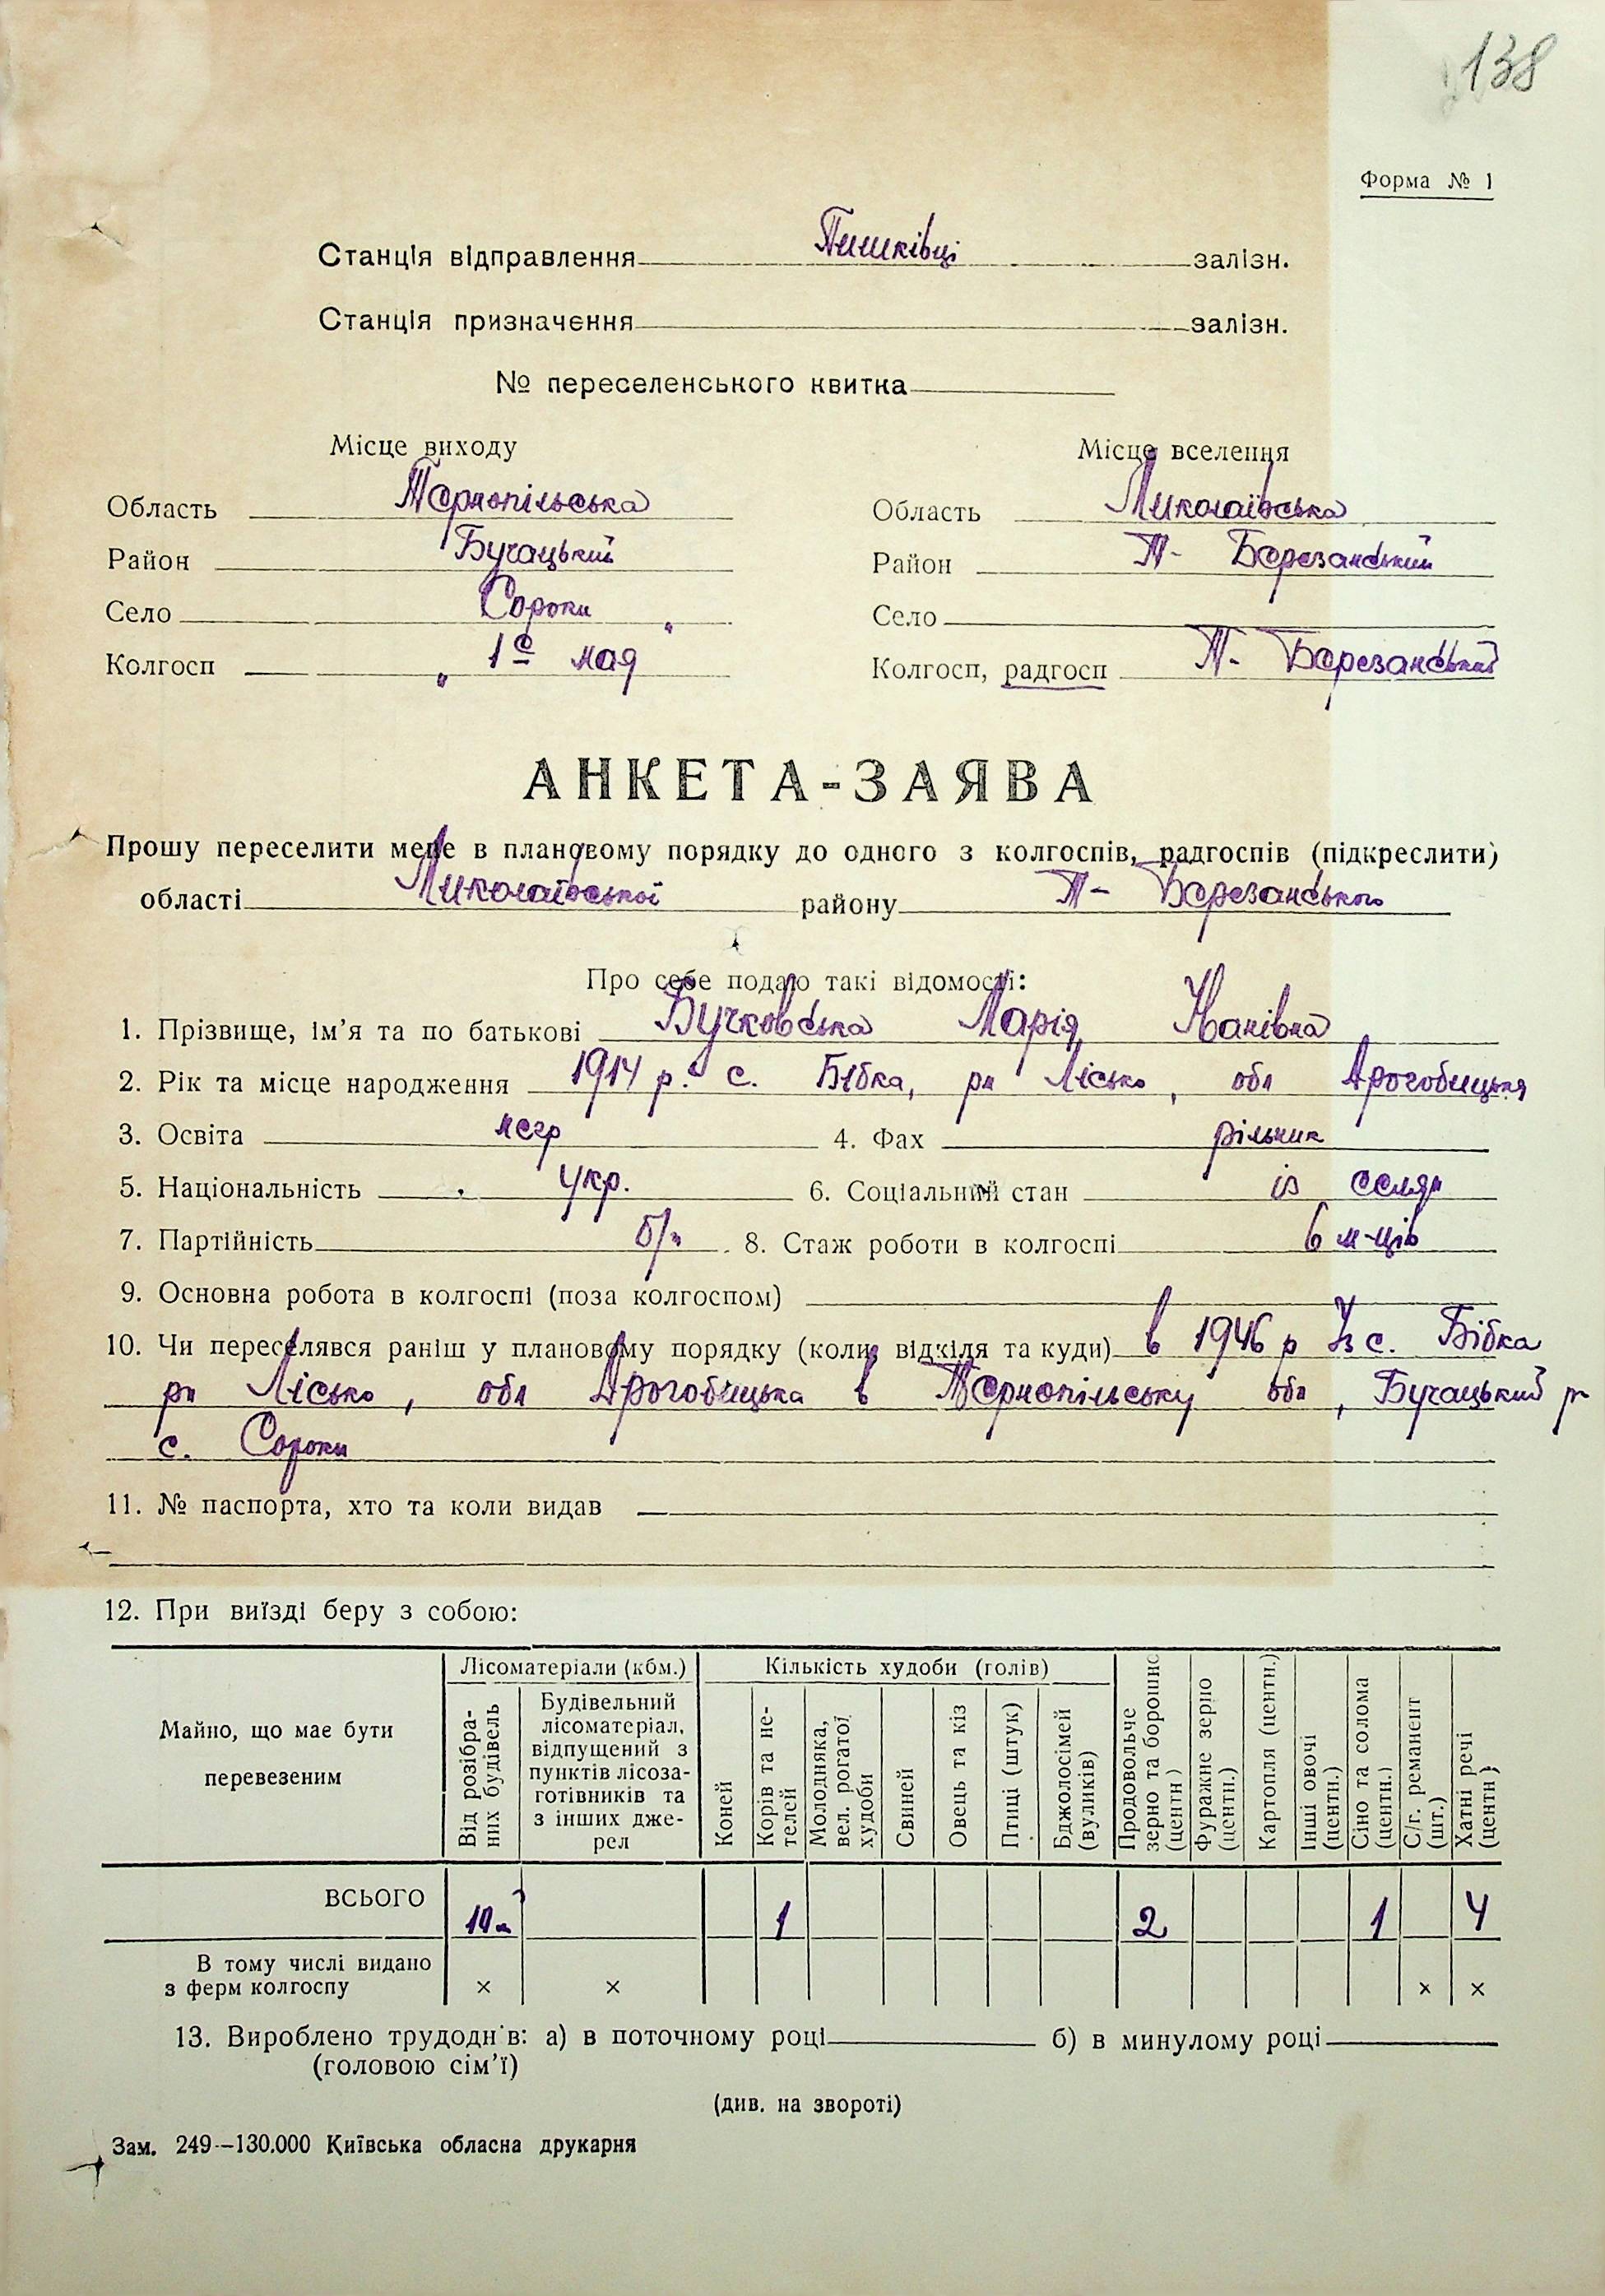 138
Форма № 1
Станція відправлення Пишківці залізн.
Станція призначення залізн.
№ переселенського квитка
Місце виходу
Місце вселення
Область Тернопільська
Область Миколаївська
Район Бучацький
Район Т- Березанський
Село Сороки
Село
Колгосп „ 1е мая "
Колгосп, радгосп Т. Березанський
АНКЕТА-ЗАЯВА
Прошу переселити мене в плановому порядку до одного з колгоспів, радгоспів (підкреслити)
області Миколаївської району Т- Березанського
Про себе подаю такі відомості:
1. Прізвище, ім'я та по батькові Бучковська Марія Іванівна
2. Рік та місце народження 1914 р. с. Бібка, рн Лісько, обл Дрогобицька
3. Освіта негр 4. Фах рільник
5. Національність укр. 6. Соціальний стан із селян
7. Партійність б/п 8. Стаж роботи в колгоспі 6 м-ців
9. Основна робота в колгоспі (поза колгоспом)
10. Чи переселявся раніш у плановому порядку (коли, відкіля та куди) в 1946 р Із с. Бібка
рн Лісько, обл Дрогобицька в Тернопільську обл, Бучацький рн
с. Сороки
11. № паспорта, хто та коли видав
12. При виїзді беру з собою:
Майно, що має бути перевезеним
Лісоматеріали (кбм.)
Кількість худоби (голів)
Від розібраних будівель
Будівельний лісоматеріал, відпущений з пунктів лісозаготівників та з інших джерел
Коней
Корів та нетелей
Молодняка, вел. рогатої худоби
Свиней
Овець та кіз
Птиці (штук)
Бджолосімей (вуликів)
Продовольче зерно та борошно (центн)
Фуражне зерно (центн.)
Картопля (центн.)
Інші овочі (центн.)
Сіно та солома (центн.)
С/г. реманент (шт.)
Хатні речі (центн)
ВСЬОГО 10м³ 1 2 1 4
В тому числі видано з ферм колгоспу × × × ×
13. Вироблено трудоднів: а) в поточному році б) в минулому році
(головою сім'ї)
(див. на звороті)
Зам. 249—130.000 Київська обласна друкарня